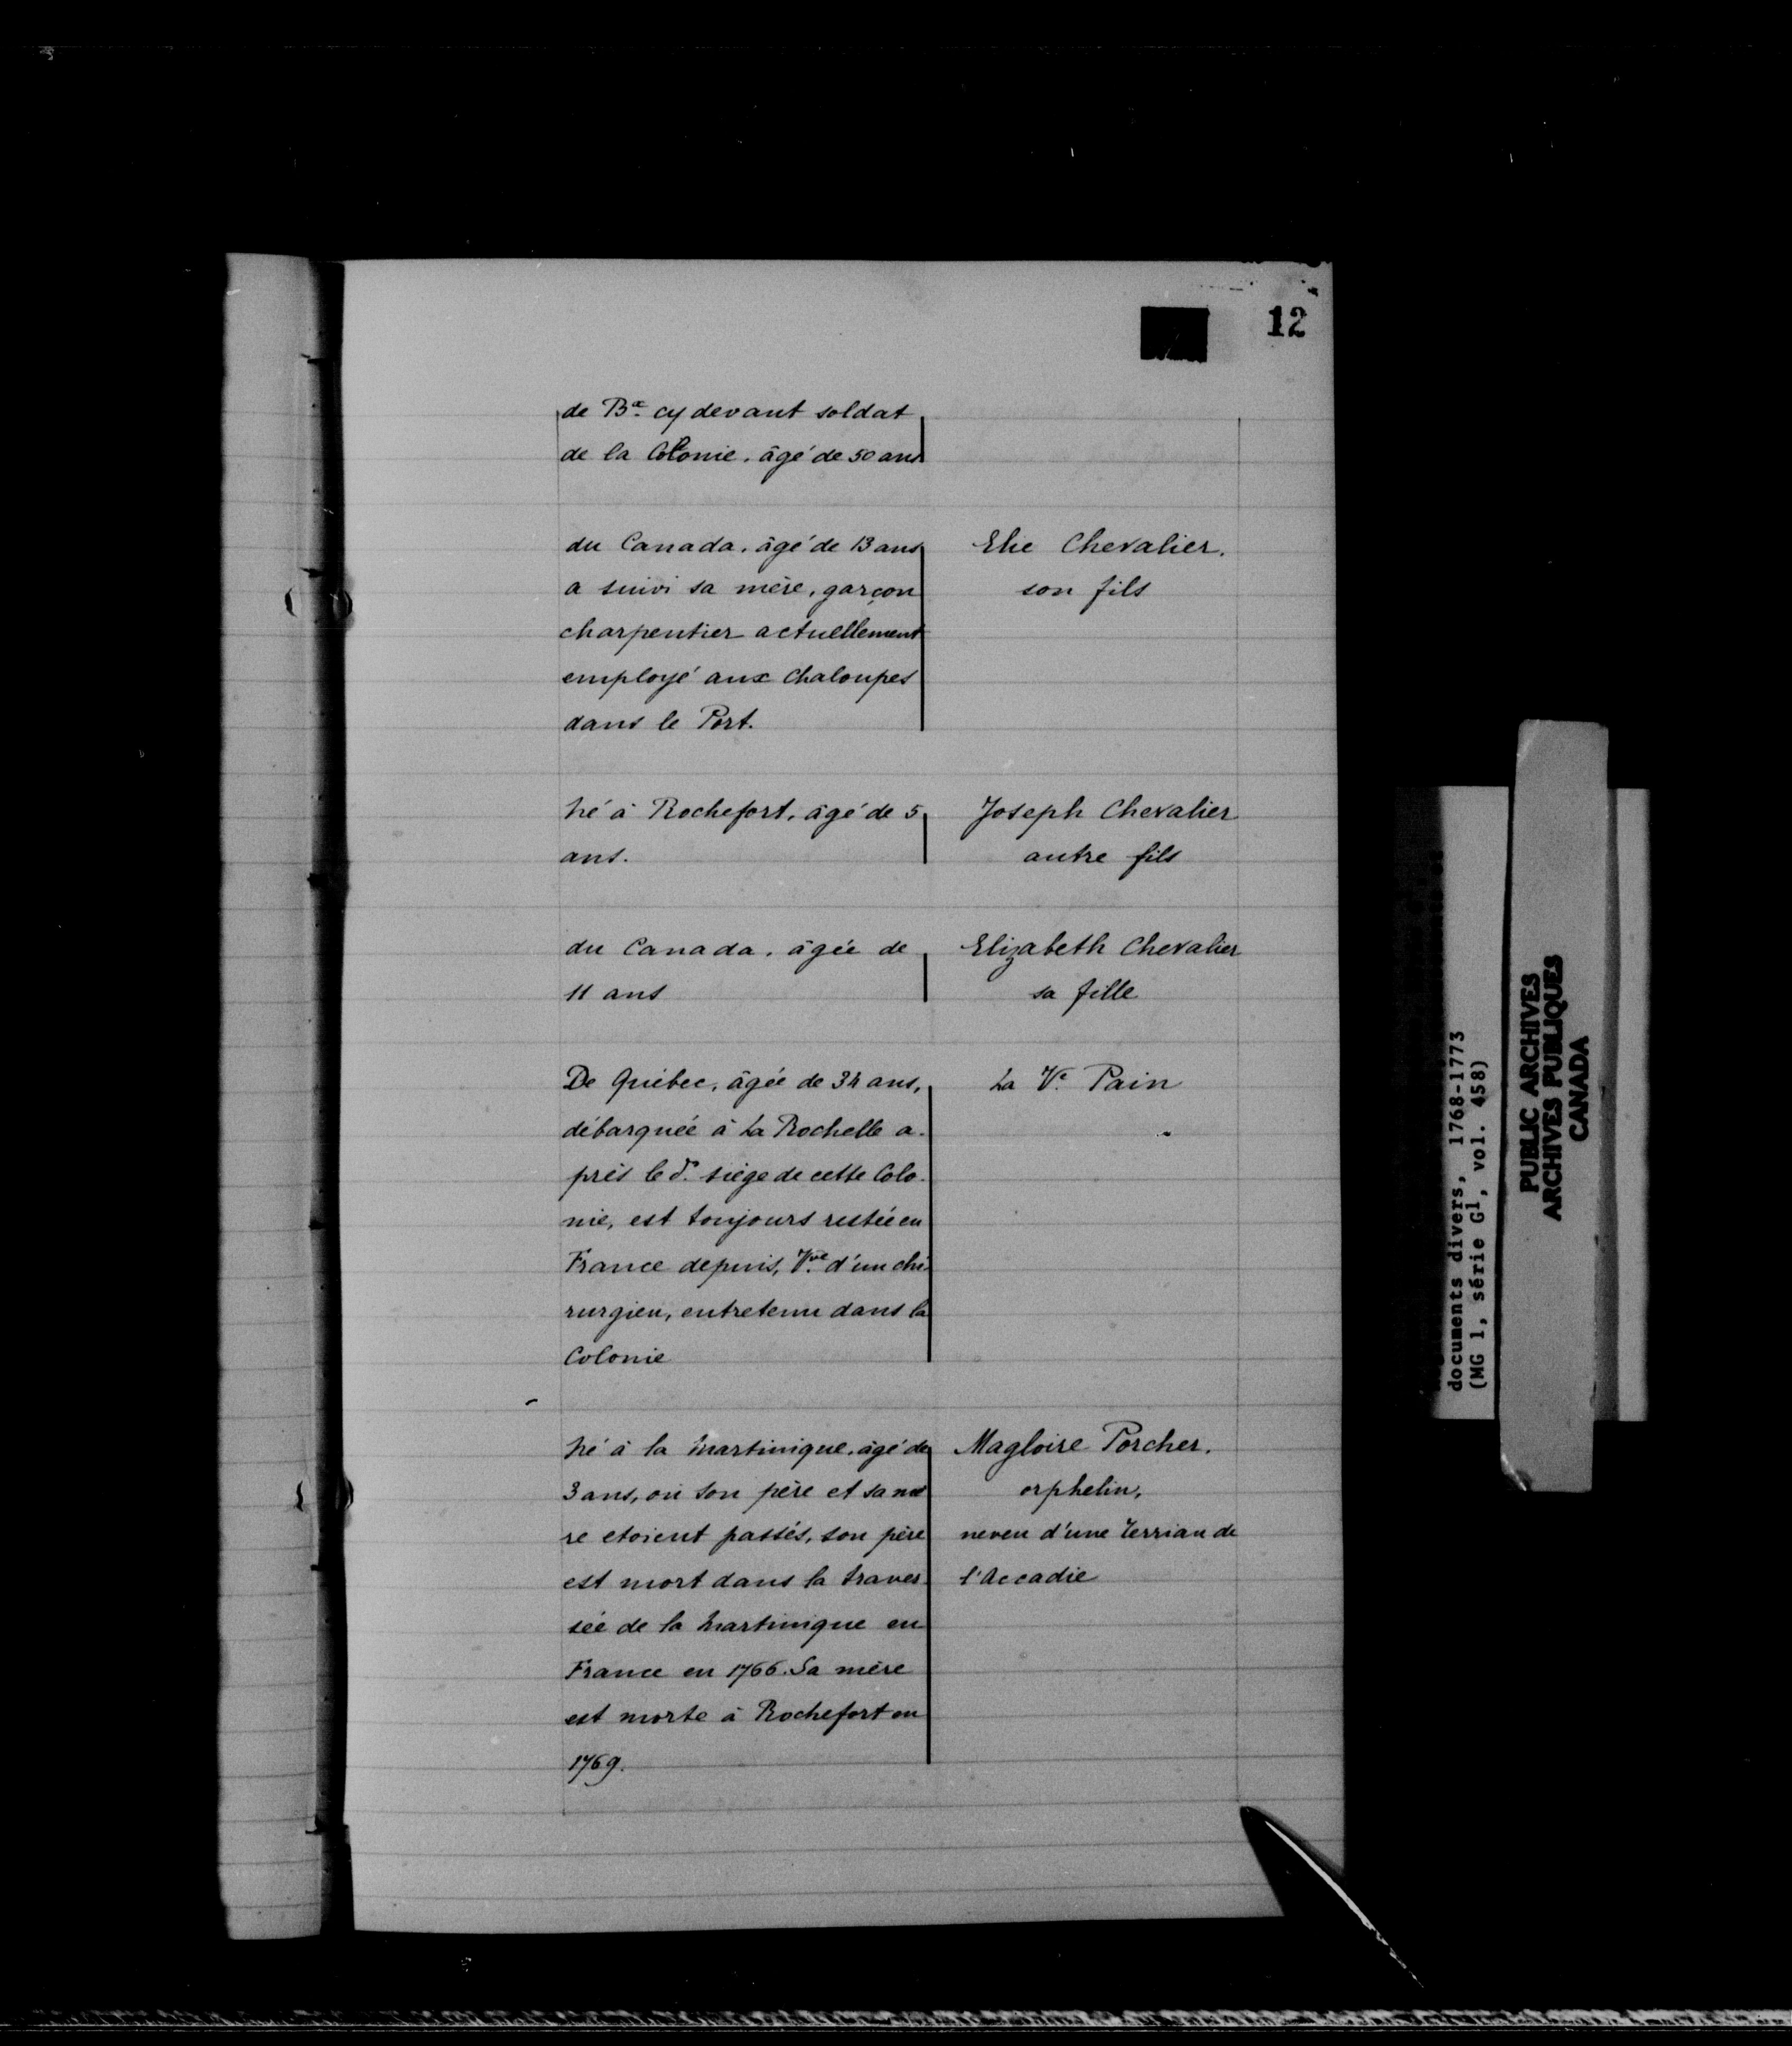 12
de Bᵃ cy devant soldat
de la Colonie, âgé de 50 ans
du Canada, âgé de 13 ans
a suivi sa mère, garçon
charpentier actuellement
employé aux chaloupes
dans le Port.
Elie Chevalier.
son fils
Né à Rochefort, âgé de 5
ans.
Joseph Chevalier
autre fils
du Canada, âgée de
11 ans
Elizabeth Chevalier
sa fille
De Québec, âgée de 34 ans,
débarquée à La Rochelle a-
près le dʳ siège de cette Colo-
nie, est toujours restée en
France depuis, Vᵛᵉ d'un chi-
rurgien, entretenu dans la
Colonie
La Vᵉ Pain
Né à la Martinique, âgé de
3 ans, où son père et sa mè
re etoient passés, son père
est mort dans la traver-
sée de la Martinique en
France en 1766. Sa mère
est morte à Rochefort en
1769.
Magloire Porcher,
orphelin,
neveu d'une Terriau de
l'Accadie
documents divers, 1768-1773
(MG 1, série G1, vol. 458)
PUBLIC ARCHIVES
ARCHIVES PUBLIQUES
CANADA